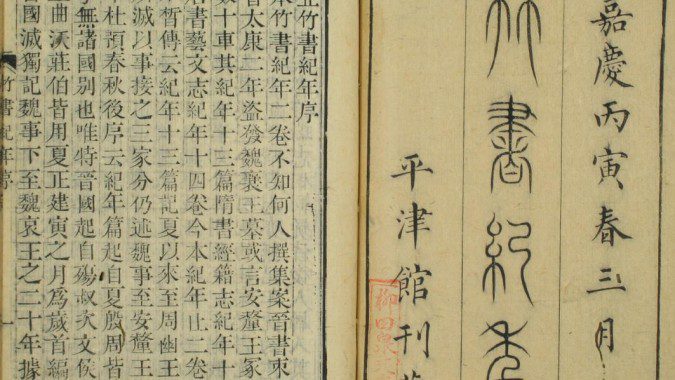 嘉慶丙寅春三月
竹書紀年
平津館刊
正竹書紀年序
竹書紀年二卷不知何人撰集案晉書束
太康二年盜發魏襄王墓或言安釐王冢
數十車其紀年十三篇隋書經籍志紀年十
書藝文志紀年十四卷今本紀年止二卷
皙傳云紀年十三篇記夏以來至周幽王
滅以事接之三家分仍述魏事至安釐王
杜預春秋後序云紀年篇起自夏殷周皆
無諸國别也唯特晉國起自殤叔次文侯
曲沃莊伯皆用夏正建寅之月爲歲首編
國滅獨記魏事下至魏哀王之二十年據
竹書紀年序